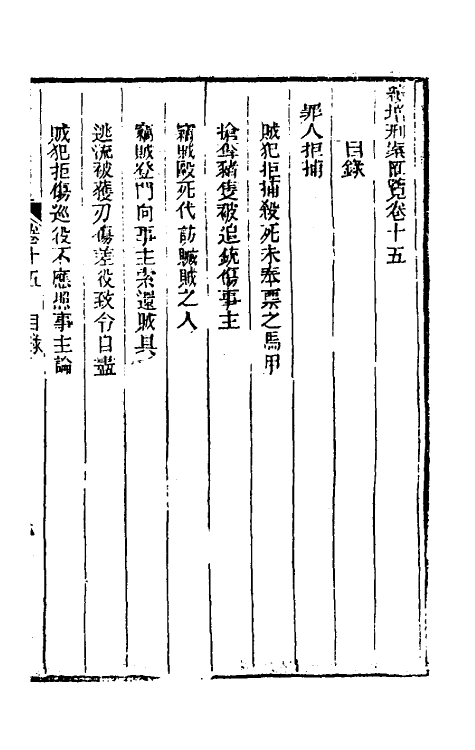 新增刑案匯覽卷十五
目錄
罪人拒捕
賊犯拒捕殺死未奉票之馬甲
搶奪豬隻被追銃傷事主
竊賊毆死代訪贓賊之人
竊賊登門向事主索還賊具
逃流被獲刃傷差役致令自盡
賊犯拒傷巡役不應照事主論
卷十五 目錄